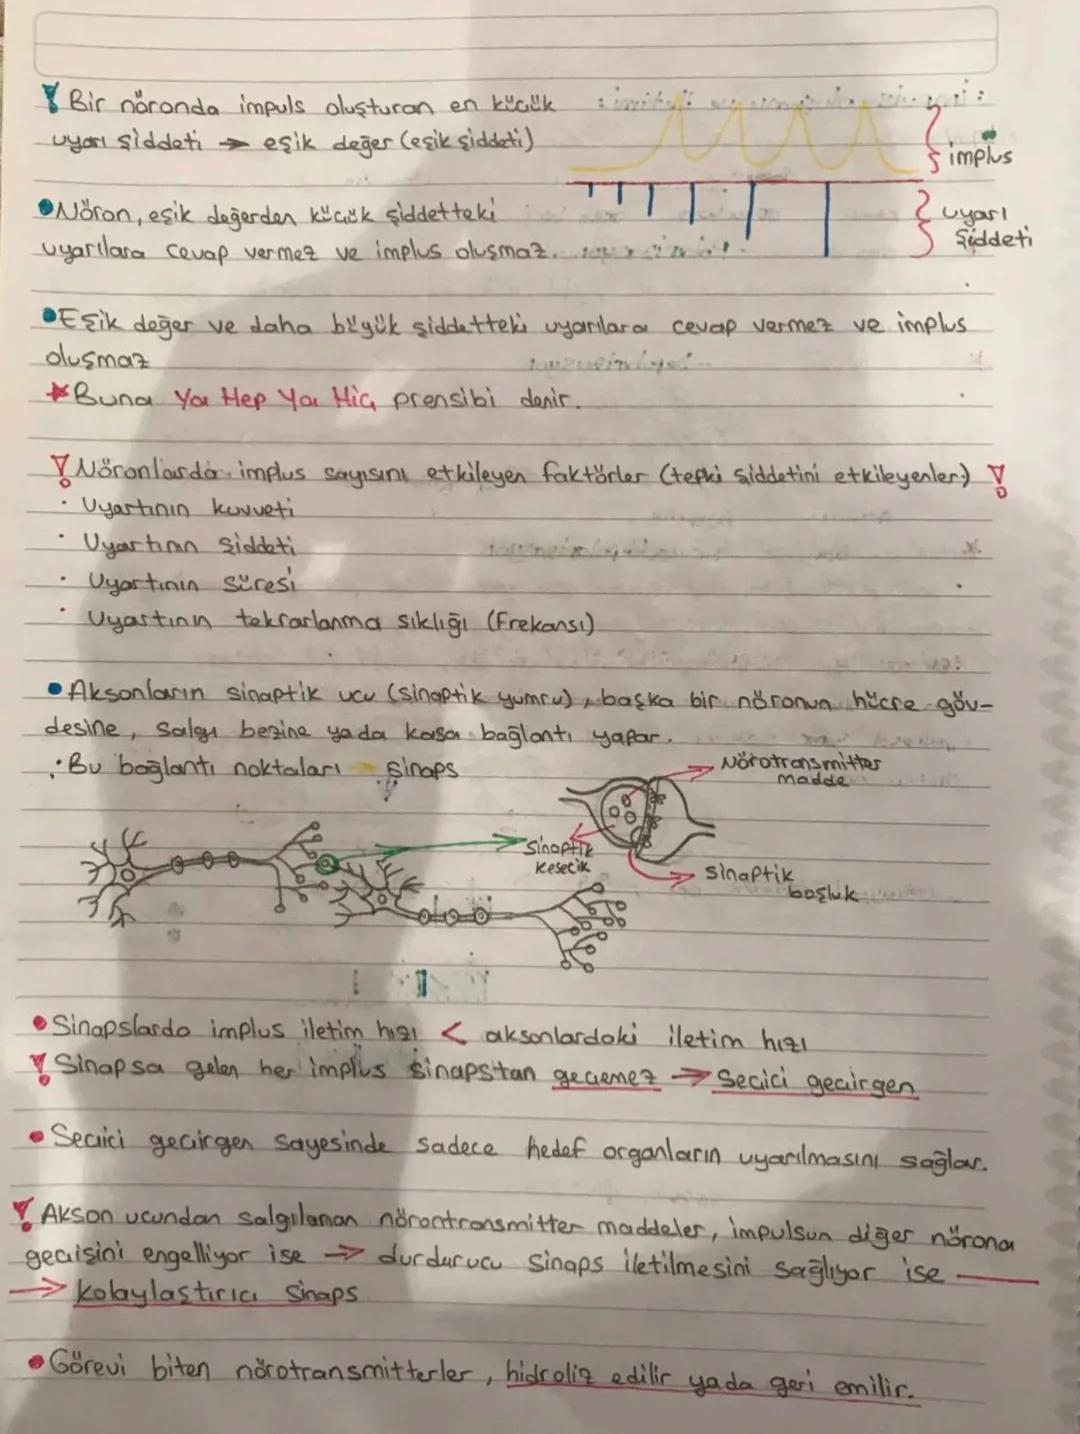 Bir nöronda impuls oluşturan en küçük
uyarı şiddeti → eşik değer (eşik şiddeti)
implus
uyarı
şiddeti
•Nöron, eşik değerden küçük şiddetteki
uyarılara cevap vermez ve implus oluşmaz.
•Eşik değer ve daha büyük şiddetteki uyarılara cevap vermez ve implus
oluşmaz
*Buna Ya Hep Ya Hiç prensibi denir.
Nöronlarda implus sayısını etkileyen faktörler (tepki şiddetini etkileyenler)
· Uyartının kuvveti
· Uyartının şiddeti
· Uyartının süresi
· Uyartının tekrarlanma sıklığı (frekansı)
•Aksonların sinaptik ucu (sinaptik yumru), başka bir nöronun hücre göv-
desine, salgı bezine yada kasa bağlantı yapar.
∴Bu bağlantı noktaları → Sinaps
Nörotransmitter
madde
Sinaptik
kesecik
sinaptik
boşluk
•Sinapslarda implus iletim hızı < aksonlardaki iletim hızı
Sinapsa gelen her implus sinapstan geçemez → Seçici geçirgen
•Seçici geçirgen sayesinde sadece hedef organların uyarılmasını sağlar.
Akson ucundan salgılanan nörontransmitter maddeler, impulsun diğer nörona
geçişini engelliyor ise → durdurucu sinaps iletilmesini sağlıyor ise
→ kolaylaştırıcı sinaps
•Görevi biten nörotransmitterler, hidroliz edilir yada geri emilir.